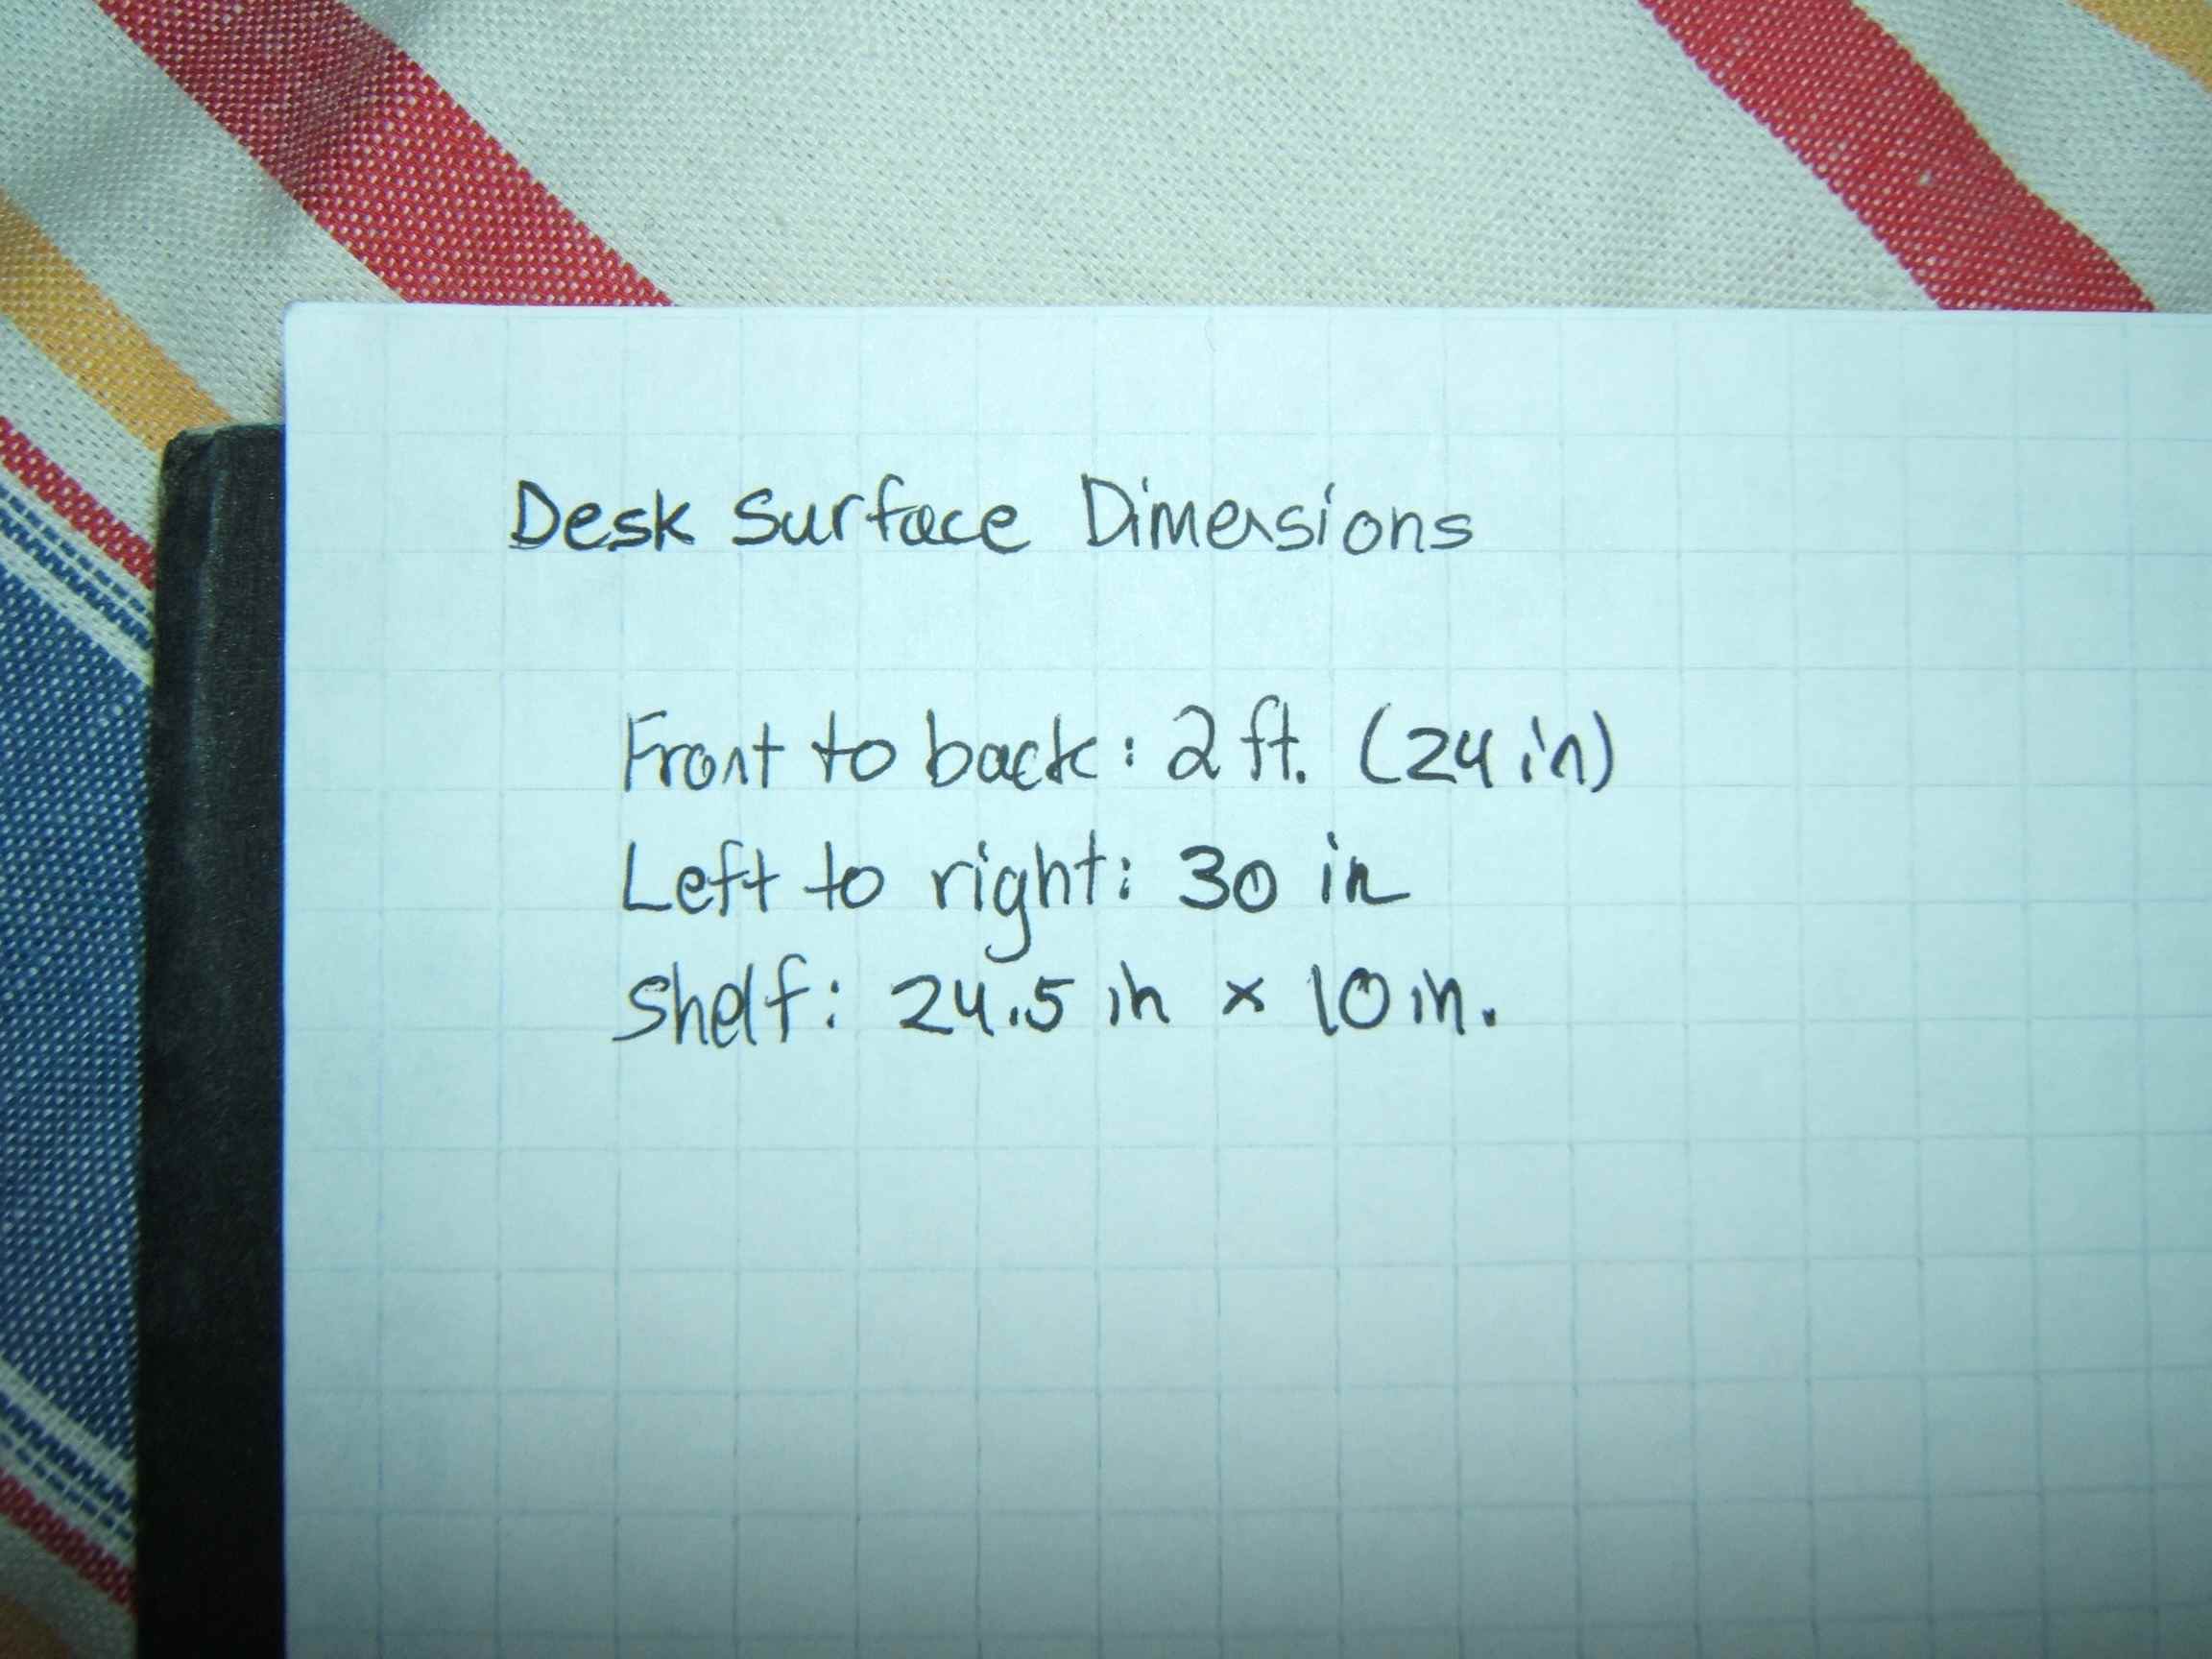 Desk Surface Dimensions
Front to back: 2 ft. (24 in)
Left to right: 30 in
Shelf: 24.5 in x 10 in.